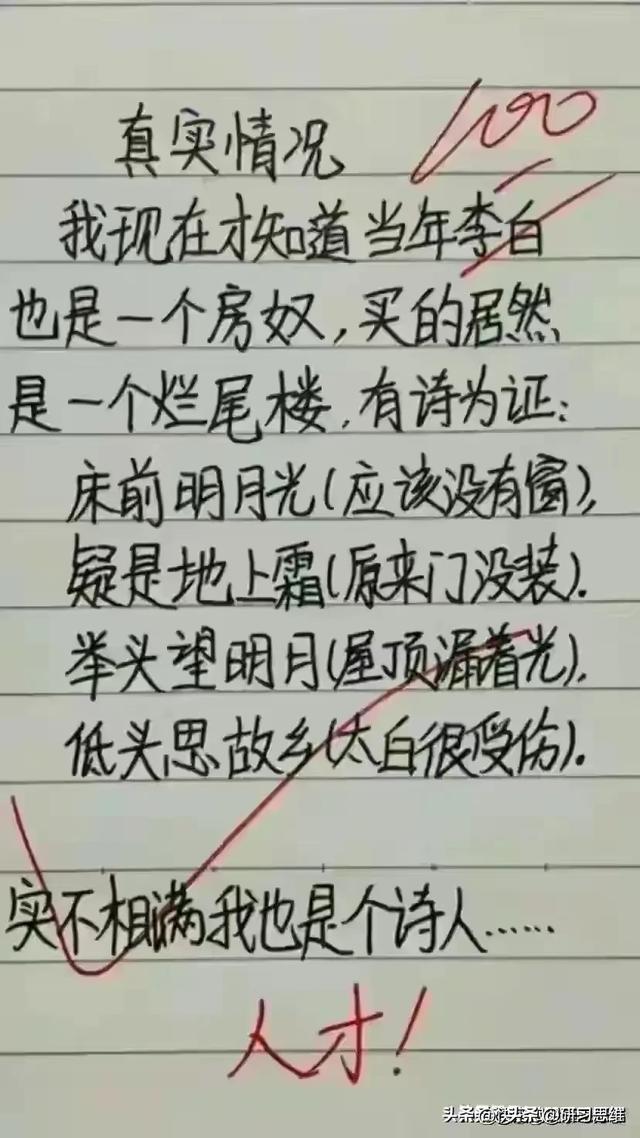 真实情况
100
我现在才知道当年李白
也是一个房奴,买的居然
是一个烂尾楼,有诗为证:
床前明月光(应该没有窗),
疑是地上霜(原来门没装).
举头望明月(屋顶漏着光),
低头思故乡(太白很受伤).
实不相满我也是个诗人……
人才!
头条@研习思维